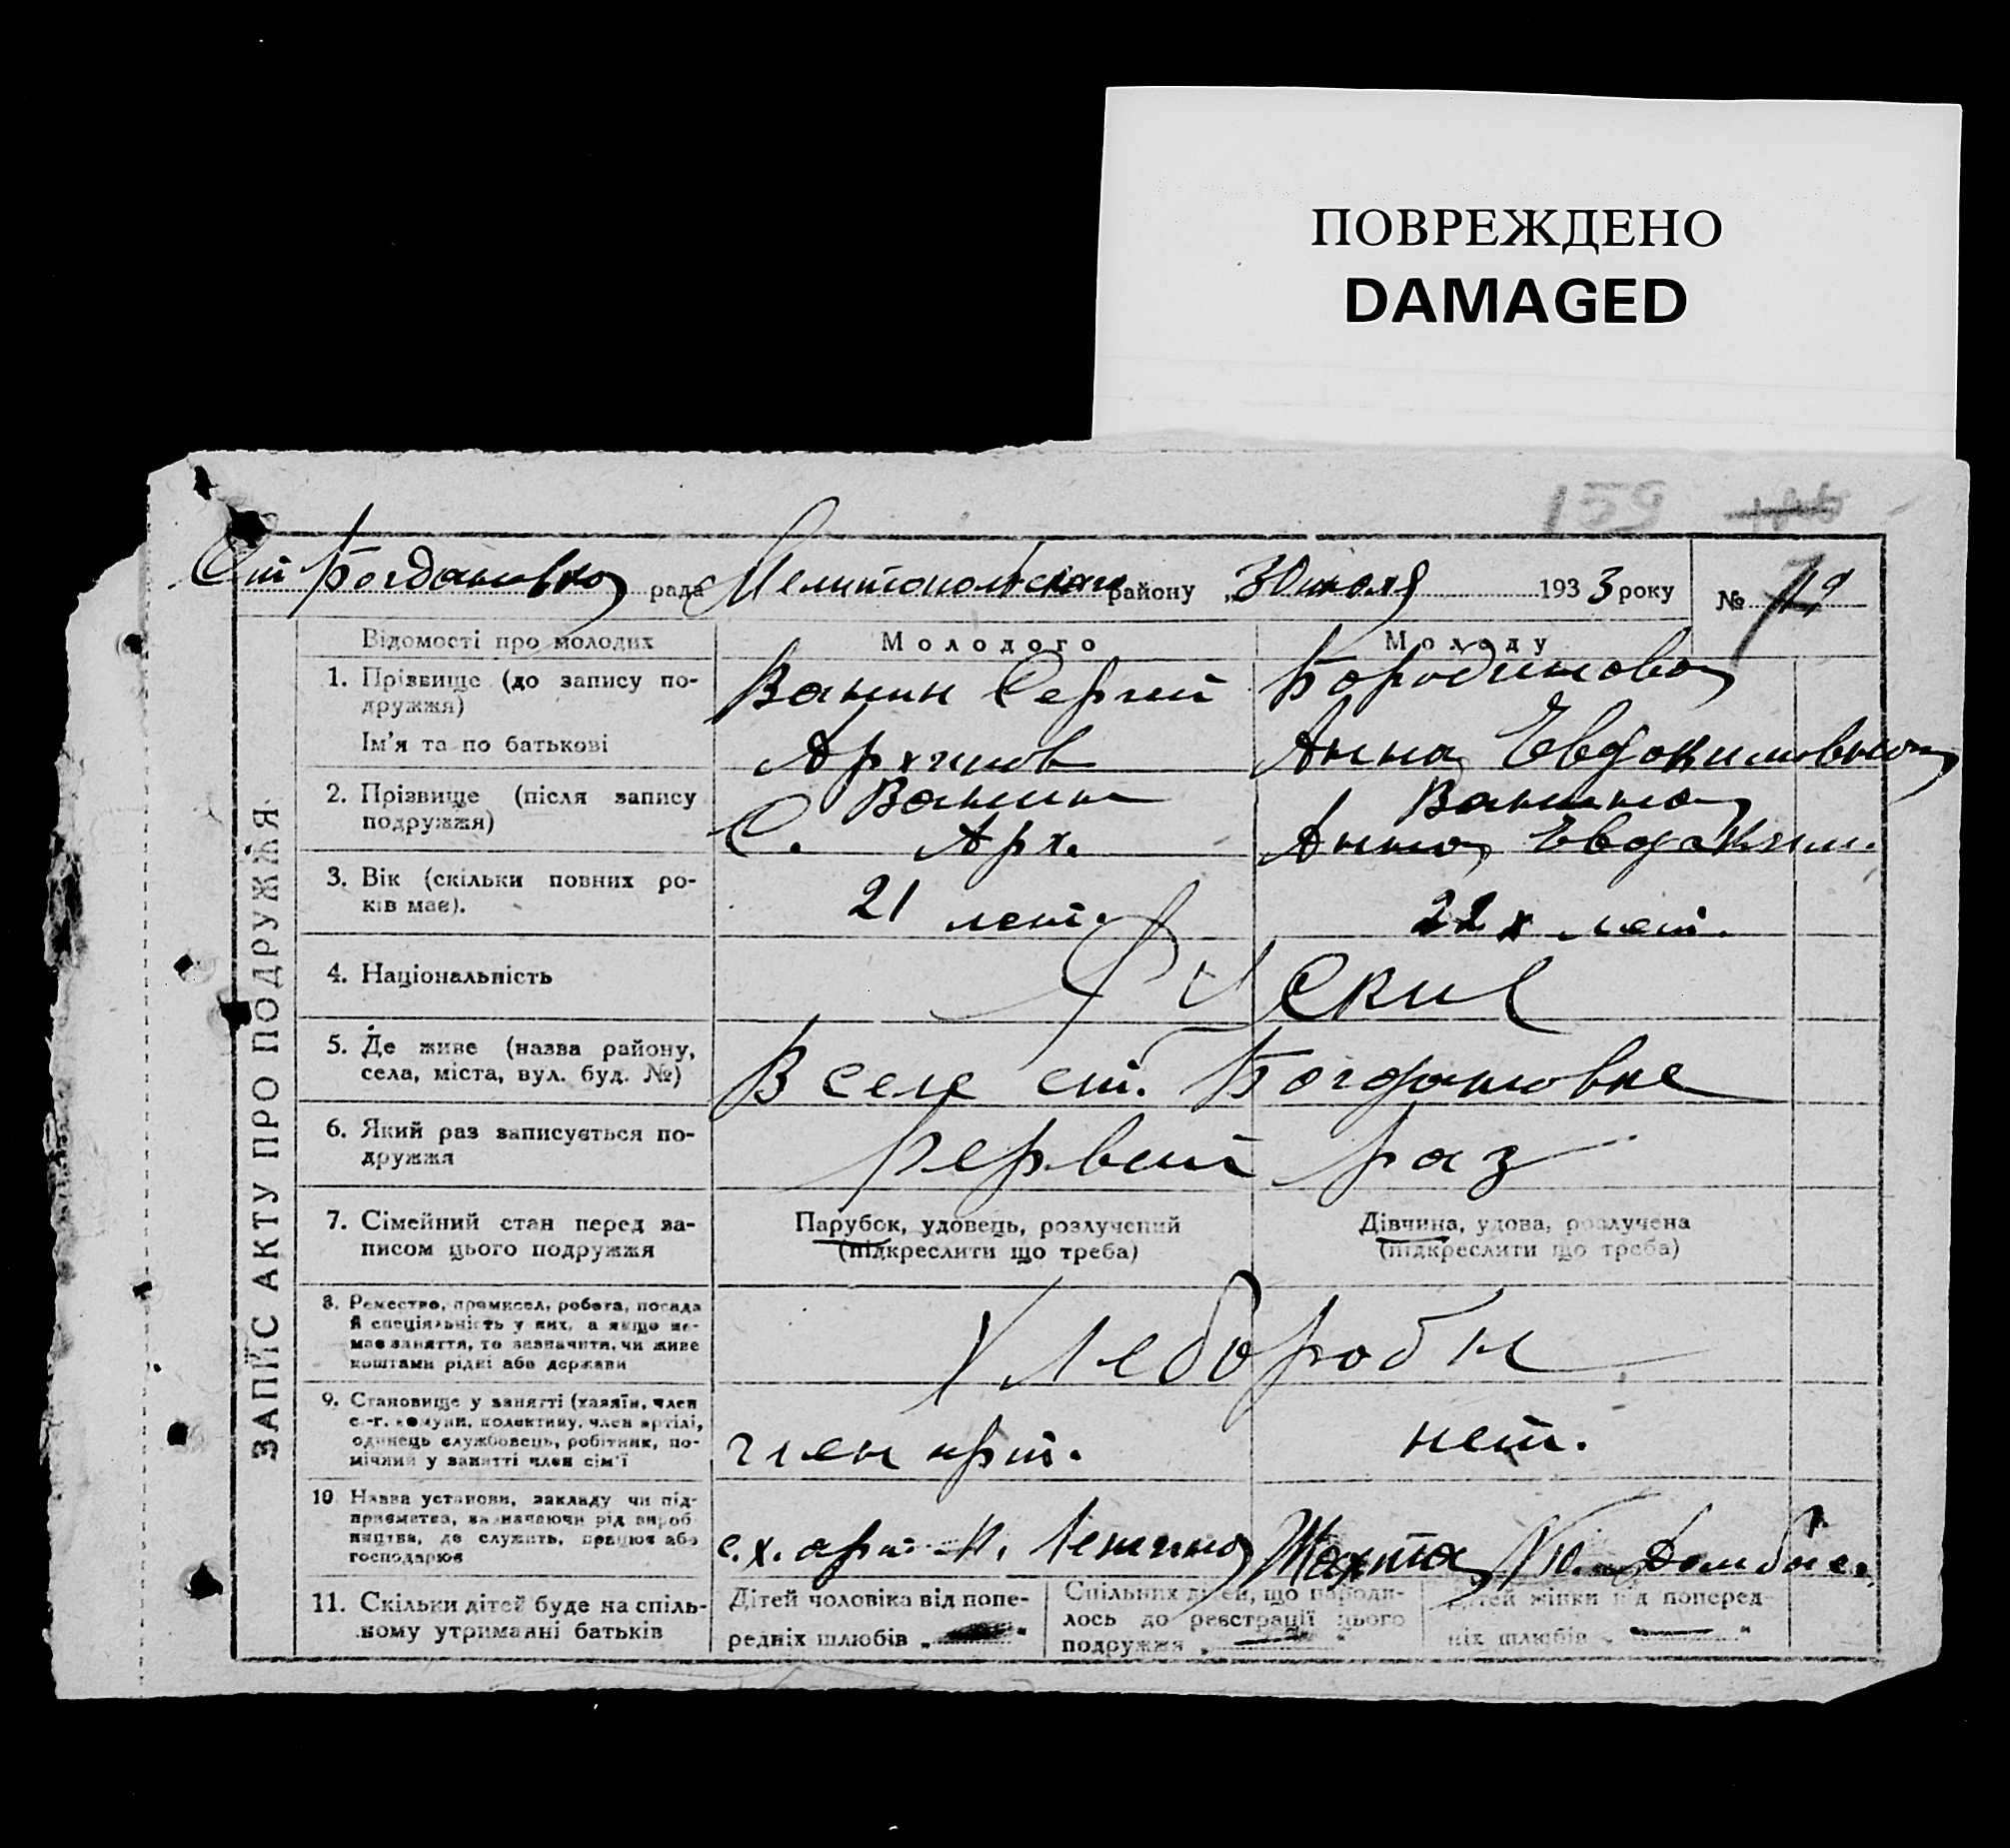 ПОВРЕЖДЕНО
DAMAGED
159
Ст Богдановка рада Мелитопольского району „30 июля 1933 року №
ЗАПИС АКТУ ПРО ПОДРУЖЖЯ
Відомості про молодих Молодого Молоду
1. Прізвище (до запису по-
дружжя) Ванин Сергий Бородинова
Ім'я та по батькові Архипов Анна Евдокимовна
2. Прізвище (після запису Ванин Ванина
подружжя) С. Арх. Анна Евдоким.
3. Вік (скільки повних ро-
ків має). 21 лет. 22 х лет.
4. Національність Руские
5. Де живе (назва району,
села, міста, вул. буд. №) В селе ст. Богдановке
6. Який раз записується по-
дружжя Первый раз
7. Сімейний стан перед за- Парубок, удовець, розлучений Дівчина, удова, розлучена
писом цього подружжя (підкреслити що треба) (підкреслити що треба)
8. Ремество, промисел, робота, посада
й спеціяльність у них, а якщо не-
має заняття, то зазначити, чи живе
коштами рідні або держави Хлеборобы
9. Становище у занятті (хазяїн, член
с.-г. комуни, колективу, член артілі,
одинець службовець, робітник, по-
мічний у занятті член сім'ї член арт. нет.
10. Назва установи, закладу чи під-
приємства, зазначаючи рід вироб
ництва, де служить, працює або
господарює с.х. арт. Ленина
11. Скільки дітей буде на спіль-
ному утриманні батьків
Дітей чоловіка від попе-
редніх шлюбів „ “
Спільних дітей, що народи-
лось до реєстрації цього
подружжя „ — “
Дітей жінки від поперед-
ніх шлюбів „ — “